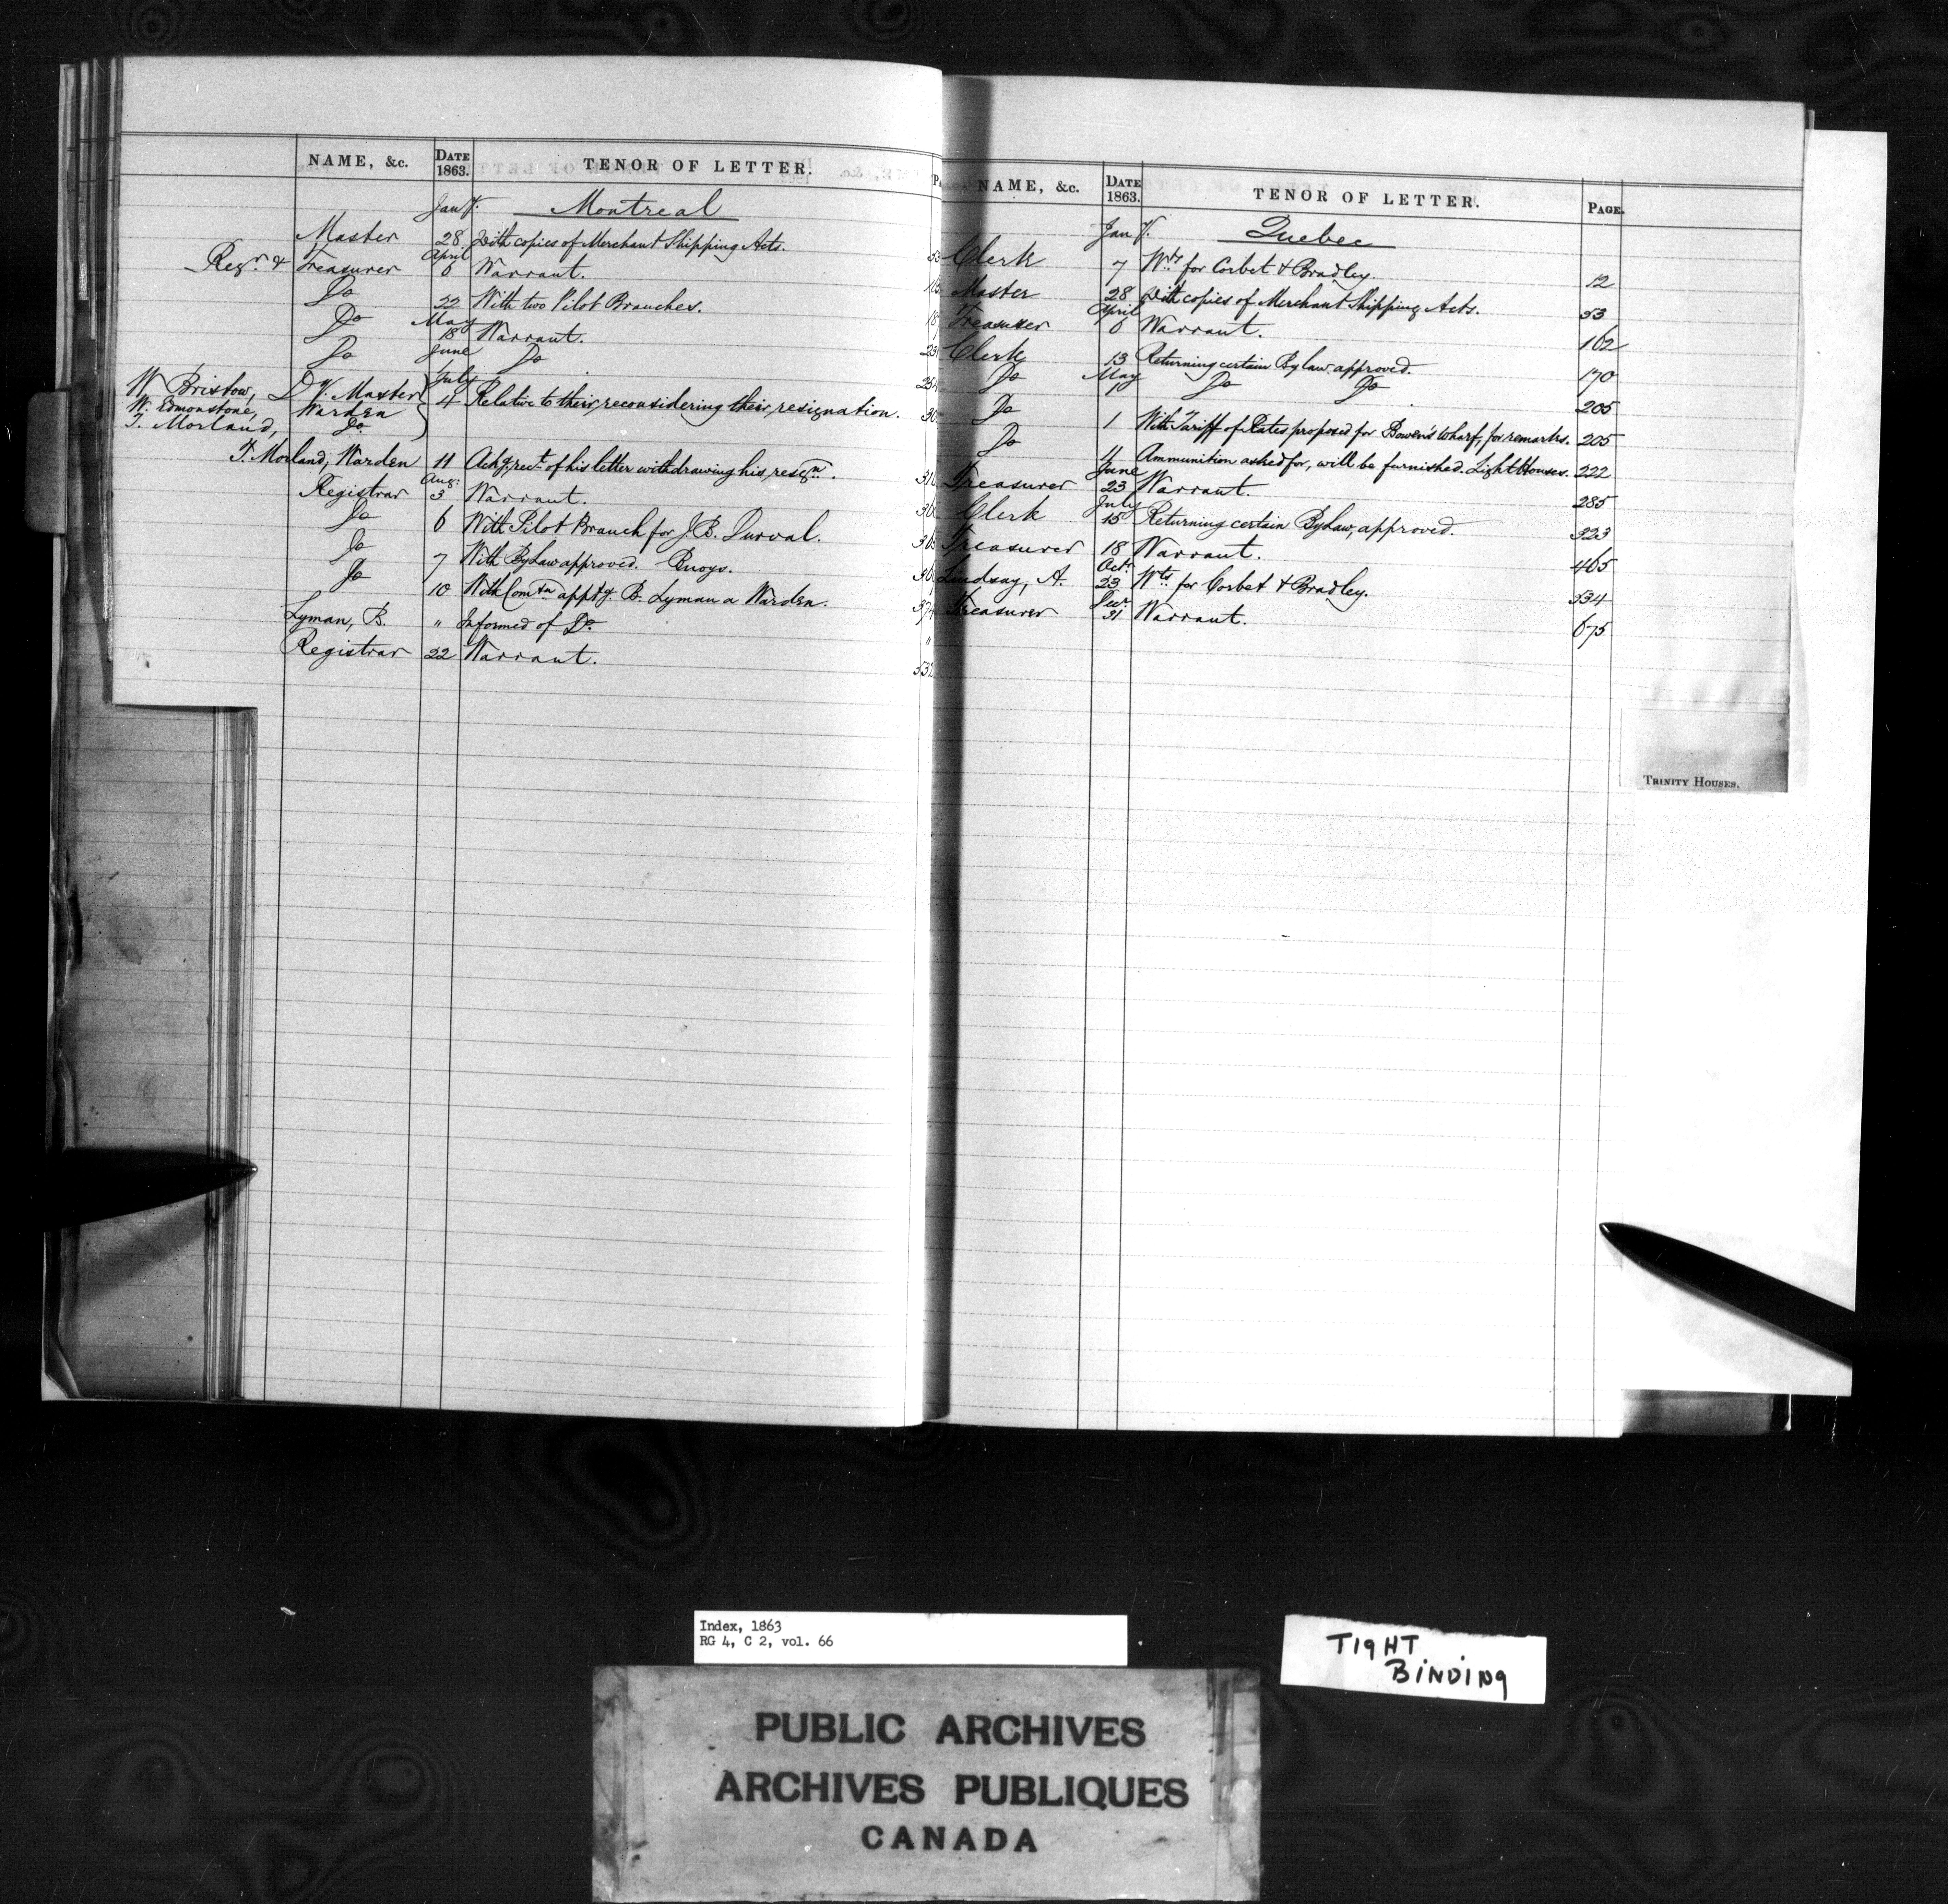 NAME, &c. DATE 1863. TENOR OF LETTER.
Jany. Montreal
Master 28 With copies of Merchant Shipping Acts. 53
Regr. & Treasurer April 8 Warrant.
Do 22 With two Pilot Branches.
Do May 18 Warrant.
Do June Do
W. Bristow, Dy. Master July
W. Edmonstone, Warden 4 Relative to their reconsidering their resignation.
T. Morland, Do
T. Morland, Warden 11 Ackg. rect. of his letter withdrawing his resign.
Registrar Aug: 3 Warrant.
Do 6 With Pilot Branch for J. B. Durval.
Do 7 With By Law approved. Buoys.
Do 10 With Comtn apptg. B. Lyman a Warden.
Lyman, B. " Informed of Do. "
Registrar 22 Warrant. 532
NAME, &c. DATE 1863. TENOR OF LETTER. PAGE.
Jany. Quebec
Clerk 7 Wts for Corbet & Bradley. 12
Master 28 With copies of Merchant Shipping Acts. 53
Treasurer April 8 Warrant. 162
Clerk 13 Returning certain By law approved. 170
Do May Do Do 205
Do 1 With Tariff of Rates proposed for Bowen's Wharf, for remarks. 205
Do 11 Ammunition asked for, will be furnished. Light Houses. 222
Treasurer June 23 Warrant. 285
Clerk July 15 Returning certain By Law, approved. 323
Treasurer 18 Warrant. 465
Lindsay, A. Octr. 23 Wts for Corbet & Bradley. 534
Treasurer Decr. 31 Warrant. 675
TRINITY HOUSES.
Index, 1863
RG 4, C 2, vol. 66
TIGHT
BINDING
PUBLIC ARCHIVES
ARCHIVES PUBLIQUES
CANADA